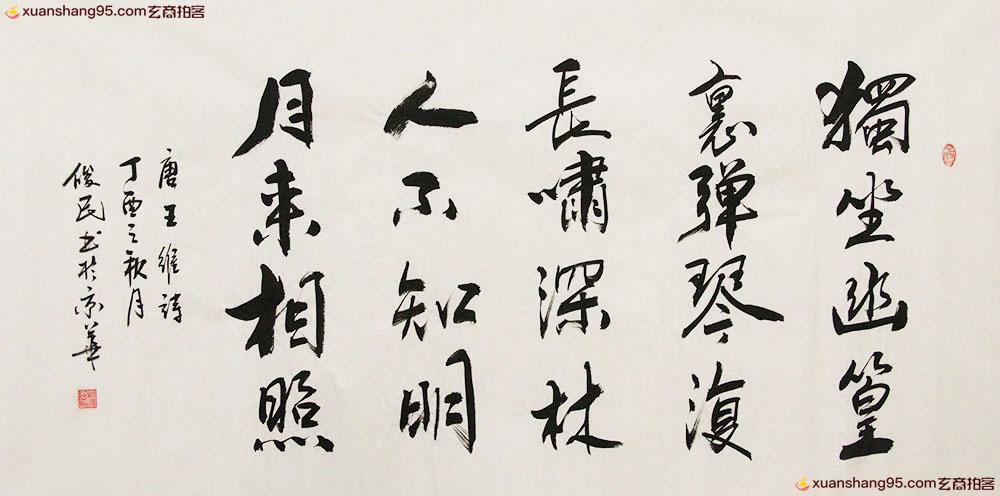 獨坐幽篁
裏弹琴復
長嘯深林
人不知明
月来相照
唐王維詩
丁酉之秋月
俊民书於京華
xuanshang95.com玄商拍客
xuanshang95.com玄商拍客